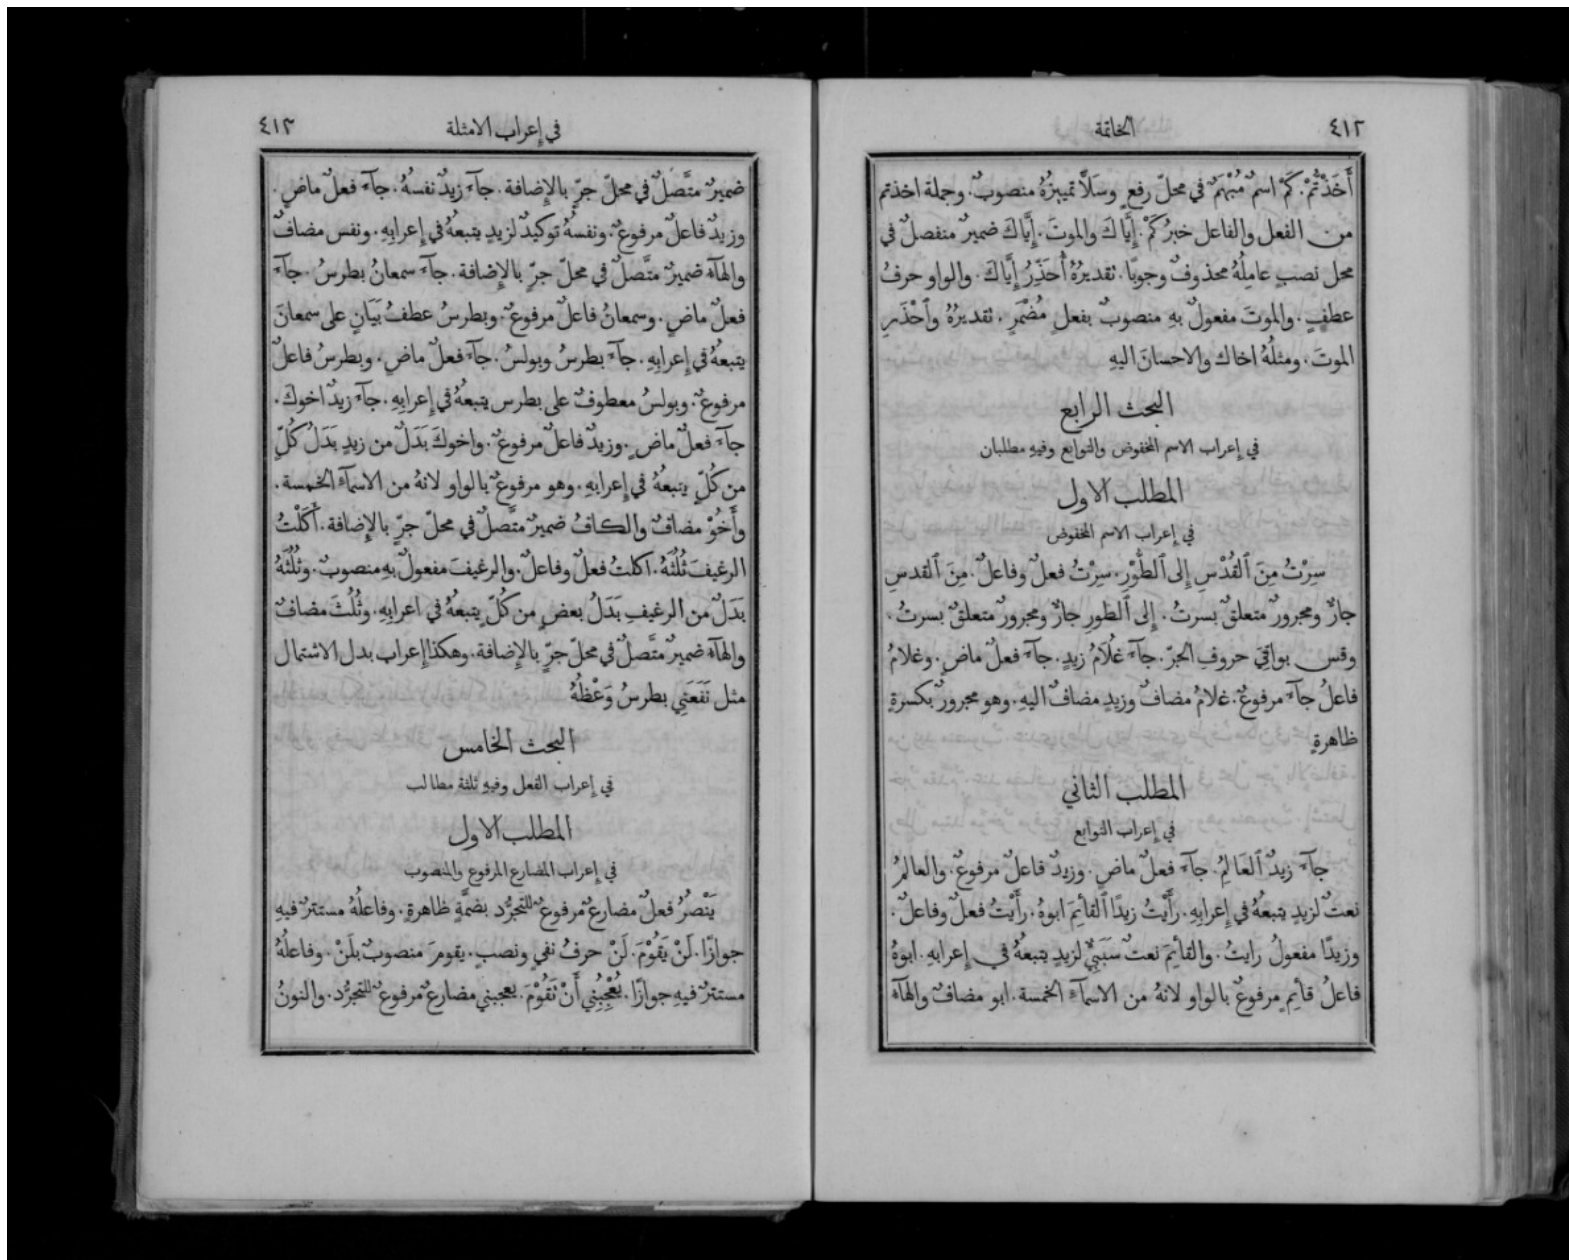 ٤١٢
الخاتمة
أَخَذْتُمْ. كَمْ اسمٌ مُبْهَمٌ في محلّ رفعٍ وسَلًّا تمييزُهُ منصوبٌ. وجملة اخذتم
من الفعل والفاعل خبرُ كَمْ. إِيَّاكَ والموتَ. إِيَّاكَ ضميرٌ منفصلٌ في
محل نصبٍ عامِلُهُ محذوفٌ وجوبًا. تقديرُهُ أُحَذِّرُ إِيَّاكَ. والواو حرفُ
عطفٍ. والموتَ مفعولٌ بهِ منصوبٌ بفعلٍ مُضْمَرٍ. تقديرُهُ وٱحْذَرِ
الموتَ. ومثلُهُ اخاك والاحسانَ اليهِ
البحث الرابع
في إعراب الاسم المخفوض والتوابع وفيهِ مطلبان
المطلب الاول
في إعراب الاسم المخفوض
سِرْتُ مِنَ ٱلقُدْسِ إِلى ٱلطُّوْرِ. سِرْتُ فعلٌ وفاعلٌ. مِنَ ٱلقدسِ
جارٌّ ومجرورٌ متعلقٌ بسرتُ. إِلى ٱلطورِ جارٌّ ومجرورٌ متعلقٌ بسرتُ.
وقس بواقيَ حروفِ الجرّ. جآءَ غُلَامُ زيدٍ. جآءَ فعلٌ ماضٍ. وغلامُ
فاعلُ جآءَ مرفوعٌ. غلامُ مضافٌ وزيدٍ مضافٌ اليهِ. وهو مجرورٌ بكسرةٍ
ظاهرةٍ
المطلب الثاني
في إعراب التوابع
جآءَ زيدٌ ٱلعَالِمُ. جآءَ فعلٌ ماضٍ. وزيدٌ فاعلٌ مرفوعٌ. والعالمُ
نعتٌ لزيدٍ يتبعهُ في إِعرابِهِ. رأَيْتُ زيدًا ٱلقائِمَ ابوهُ. رأَيْتُ فعلٌ وفاعلٌ.
وزيدًا مفعولُ رايتُ. والقائِمَ نعتٌ سَبَبِيٌّ لزيدٍ يتبعهُ في إِعرابهِ. ابوهُ
فاعلُ قائِمٍ مرفوعٌ بالواو لانهُ من الاسمآءِ الخمسة. ابو مضافٌ والهآءُ
٤١٣
في إعراب الامثلة
ضميرٌ متَّصلٌ في محلّ جرٍّ بالإِضافة. جآءَ زيدٌ نفسُهُ. جآءَ فعلٌ ماضٍ.
وزيدٌ فاعلٌ مرفوعٌ. ونفسهُ توكيدٌ لزيدٍ يتبعهُ في إِعرابِهِ. ونفس مضافٌ
والهآءُ ضميرٌ متَّصلٌ في محلّ جرٍّ بالإِضافة. جآءَ سمعانُ بطرسُ. جآءَ
فعلٌ ماضٍ. وسمعانُ فاعلٌ مرفوعٌ. وبطرسُ عطفُ بَيَانٍ على سمعانَ
يتبعهُ في إِعرابِهِ. جآءَ بطرسُ وبولسُ. جآءَ فعلٌ ماضٍ. وبطرسُ فاعلٌ
مرفوعٌ. وبولسُ معطوفٌ على بطرس يتبعهُ في إِعرابِهِ. جآءَ زيدٌ اخوكَ.
جآءَ فعلٌ ماضٍ. وزيدٌ فاعلٌ مرفوعٌ. واخوكَ بَدَلٌ من زيدٍ بَدَلُ كُلٍّ
من كُلٍّ يتبعهُ في إِعرابهِ. وهو مرفوعٌ بالواو لانهُ من الاسمآءِ الخمسة.
وأَخُوْ مضافٌ والكافُ ضميرٌ متَّصلٌ في محلّ جرٍّ بالإِضافة. أَكَلْتُ
الرغيفَ ثُلُثَهُ. اكلتُ فعلٌ وفاعلٌ. والرغيفَ مفعولٌ بهِ منصوبٌ. وثُلُثَهُ
بَدَلٌ من الرغيفِ بَدَلُ بعضٍ من كُلٍّ يتبعهُ في اعرابِهِ. وثُلُثَ مضافٌ
والهآءُ ضميرٌ متَّصلٌ في محلّ جرٍّ بالإِضافة. وهكذا إِعراب بدل الاشتمال
مثل نَفَعَنِي بطرسُ وَعْظُهُ
البحث الخامس
في إعراب الفعل وفيهِ ثلثة مطالب
المطلب الاول
في إعراب المضارع المرفوع والمنصوب
يَنْصُرُ فعلٌ مضارعٌ مرفوعٌ للتجرُّد بضمَّةٍ ظاهرةٍ. وفاعلُهُ مستترٌ فيهِ
جوازًا. لَنْ يَقُوْمَ. لَنْ حرفُ نفيٍ ونصبٍ. يقومَ منصوبٌ بلَنْ. وفاعلُهُ
مستترٌ فيهِ جوازًا. يُعْجِبُنِي أَنْ تَقُوْمَ. يعجبني مضارعٌ مرفوعٌ للتجرُّد. والنونُ